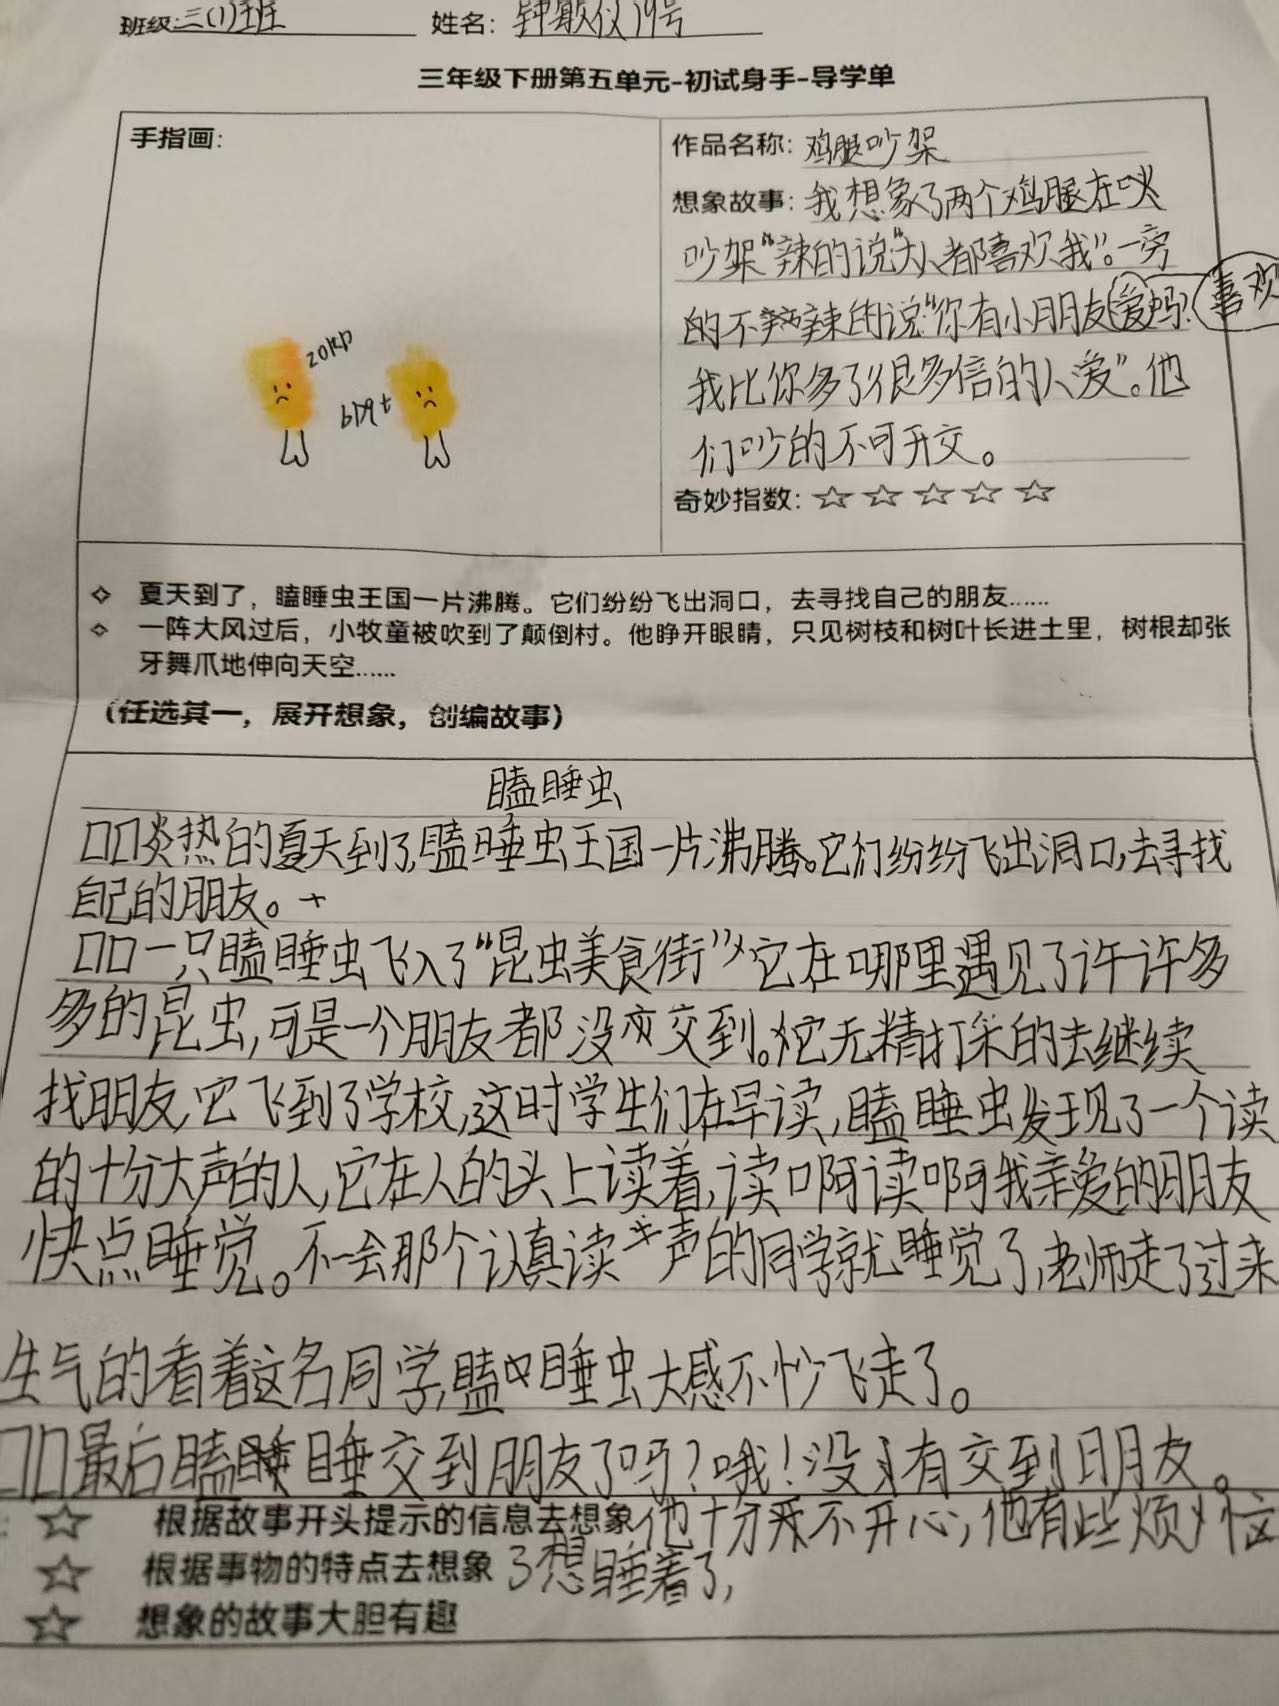 班级:三(1)班 姓名:钟敏仪19号
三年级下册第五单元-初试身手-导学单
手指画:
作品名称:鸡腿吵架
想象故事:我想象了两个鸡腿在吵
吵架“辣的说“大人都喜欢我”。一旁
的不辣的说:“你有小朋友爱吗? 喜欢
我比你多了很多信的人爱”。他
们吵的不可开交。
奇妙指数:☆ ☆ ☆ ☆ ☆
◇ 夏天到了,瞌睡虫王国一片沸腾。它们纷纷飞出洞口,去寻找自己的朋友……
◇ 一阵大风过后,小牧童被吹到了颠倒村。他睁开眼睛,只见树枝和树叶长进土里,树根却张
牙舞爪地伸向天空……
(任选其一,展开想象,创编故事)
瞌睡虫
口口炎热的夏天到了,瞌睡虫王国一片沸腾。它们纷纷飞出洞口,去寻找
自己的朋友。
口口一只瞌睡虫飞入了“昆虫美食街”它在哪里遇见了许许多
多的昆虫,可是一个朋友都没交到。它无精打采的去继续
找朋友,它飞到了学校,这时学生们在早读,瞌睡虫发现了一个读
的十分大声的人,它在人的头上读着,读啊读啊我亲爱的朋友
快点睡觉。不一会那个认真读声的同学就睡觉了,老师走了过来
生气的看着这名同学,瞌睡虫大感不妙飞走了。
口口最后瞌睡交到朋友了吗?哦!没有交到朋友。
☆ 根据故事开头提示的信息去想象 他十分不开心,他有些烦恼
☆ 根据事物的特点去想象 了想睡着了,
☆ 想象的故事大胆有趣